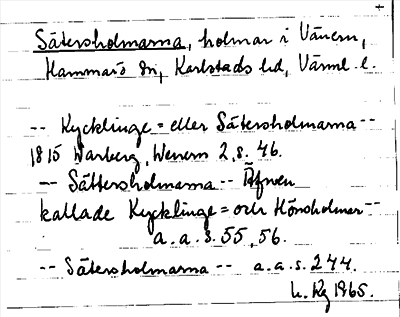 Sätersholmarna, holmar i Vänern,
Hammarö sn, Karlstads hd, Värml. l.
-- Kycklinge= eller Sätersholmarna --
1815 Warberg, Wenern 2, s. 46.
-- Sättersholmarna -- Äfven
kallade Kycklinge= och Hönsholmar --
a. a. s. 55, 56.
-- Sätersholmarna -- a. a. s. 244.
1965.